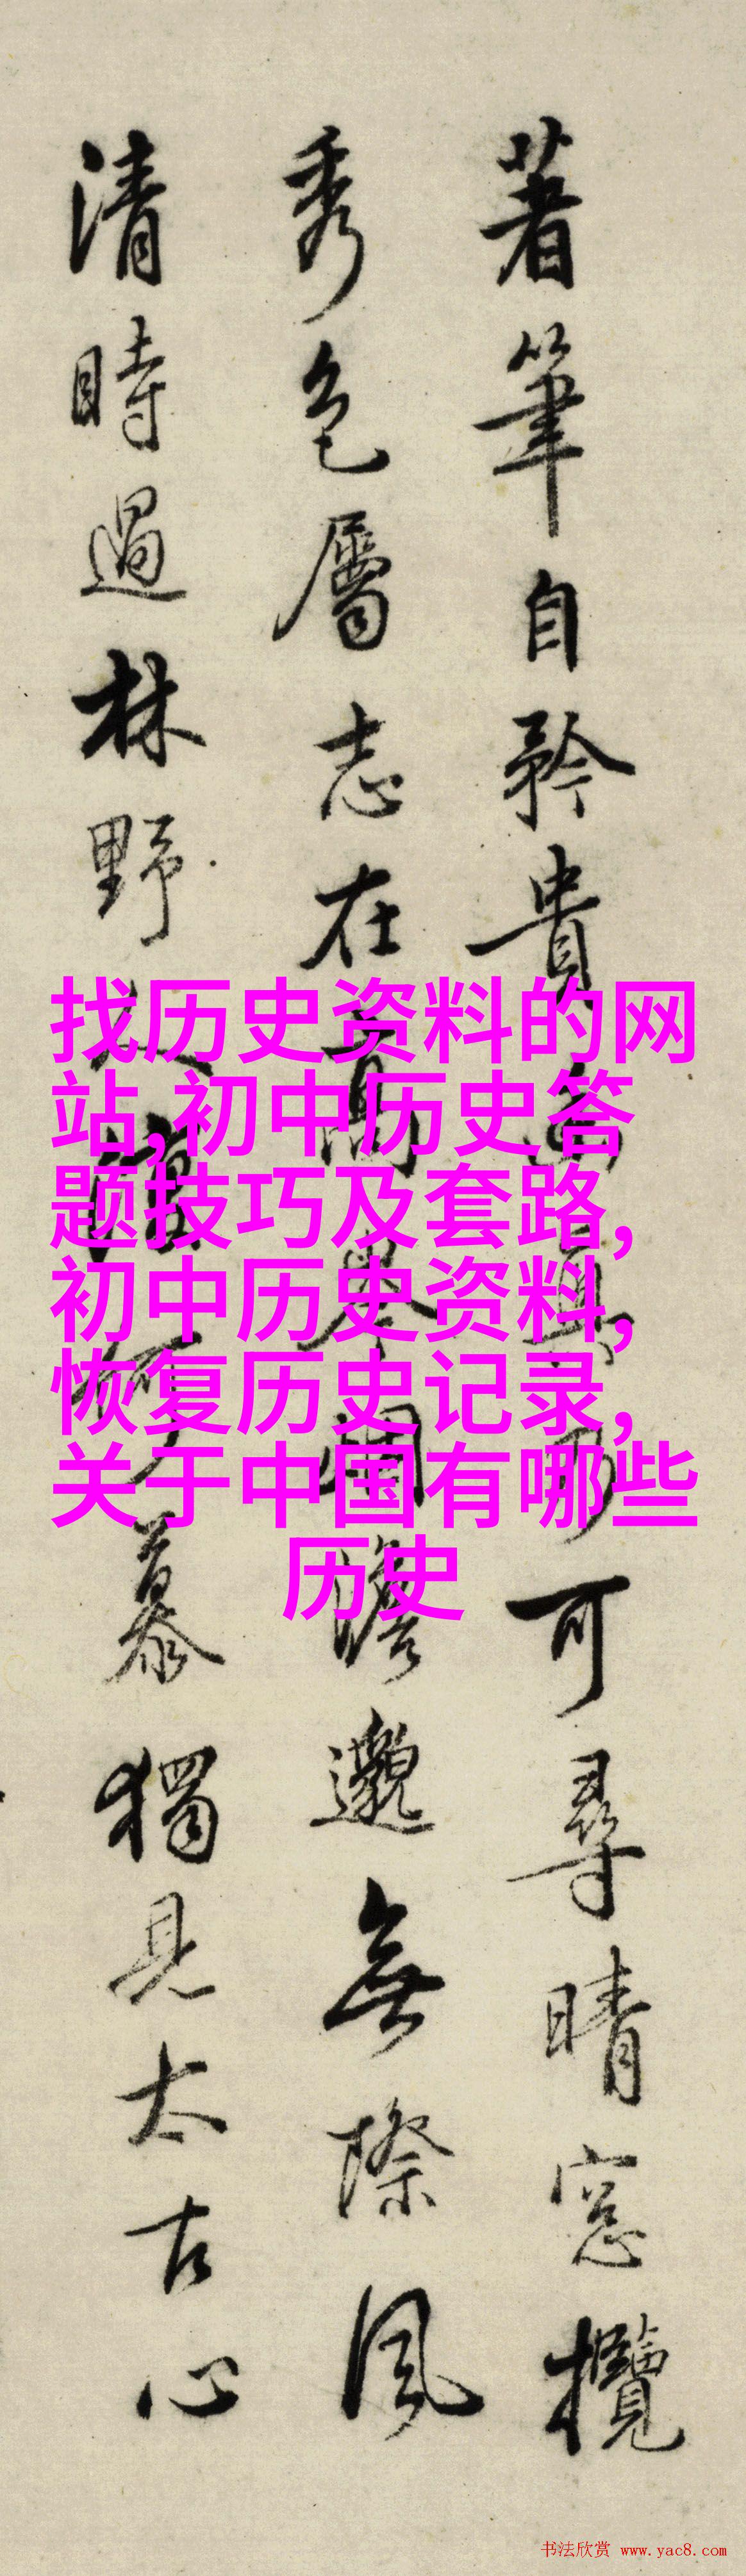 著筆自矜貴
可尋晴窓攬
秀色屬志在
瞻邈無際風
清時過林野
慕獨見太古心
找历史资料的网
站,初中历史答
题技巧及套路,
初中历史资料,
恢复历史记录,
关于中国有哪些
历史
书法欣赏 www.yac8.com